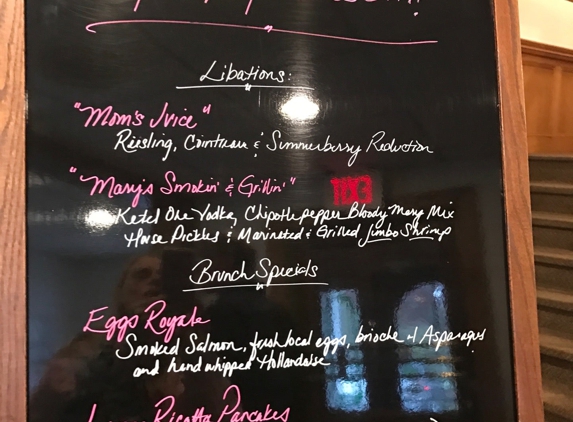 Libations:
"Mom's Juice"
Riesling, Cointreau & Summerberry Reduction
"Mary's Smokin' & Grillin'"
Ketel One Vodka, Chipotle pepper Bloody Mary Mix
House Pickles & Marinated & Grilled Jumbo Shrimp
Brunch Specials
Eggs Royale
Smoked Salmon, fresh local eggs, brioche w/ Asparagus
and hand whipped Hollandaise
Ricotta Pancakes